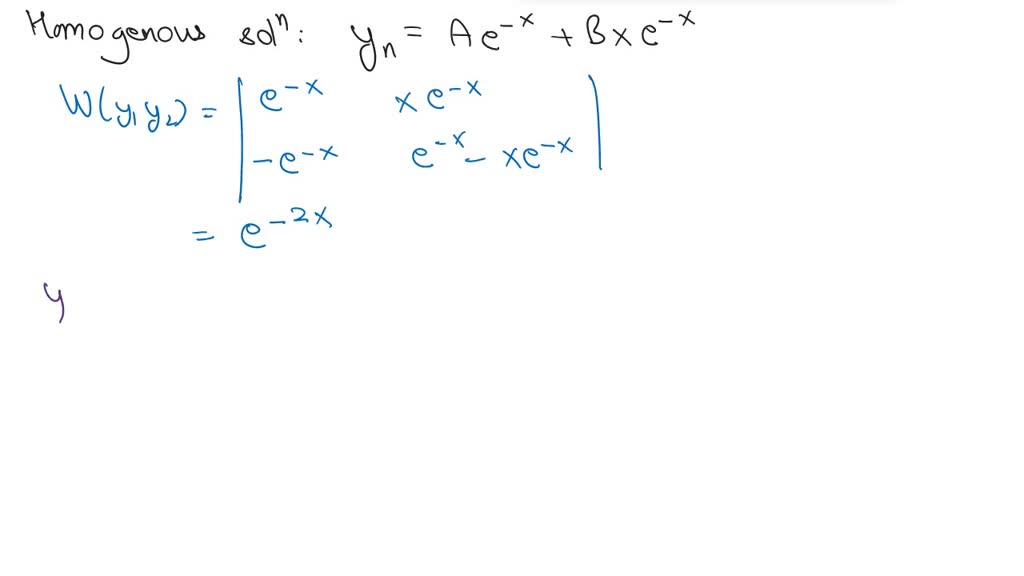 Homogenous solⁿ: yₙ = Ae⁻ˣ + Bxe⁻ˣ
W(y₁y₂) = | e⁻ˣ xe⁻ˣ |
| -e⁻ˣ e⁻ˣ - xe⁻ˣ |
= e⁻²ˣ
y